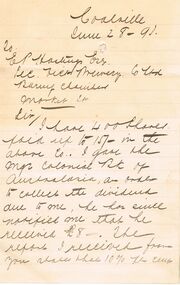 Coalville
June 28 - 91.
To
E P Hastings Esq.
Sec. Fick Brewery, C Ltd
Barry Chambers
Market St
Sir
I have 400 shares
paid up to 15/- on the
above Co. I gave the
Mgr Colonial Bk of
Australasia an order
to collect the dividend
due to me, he has since
notified me that he
received £8-. The
report I received from
you states that 10% per